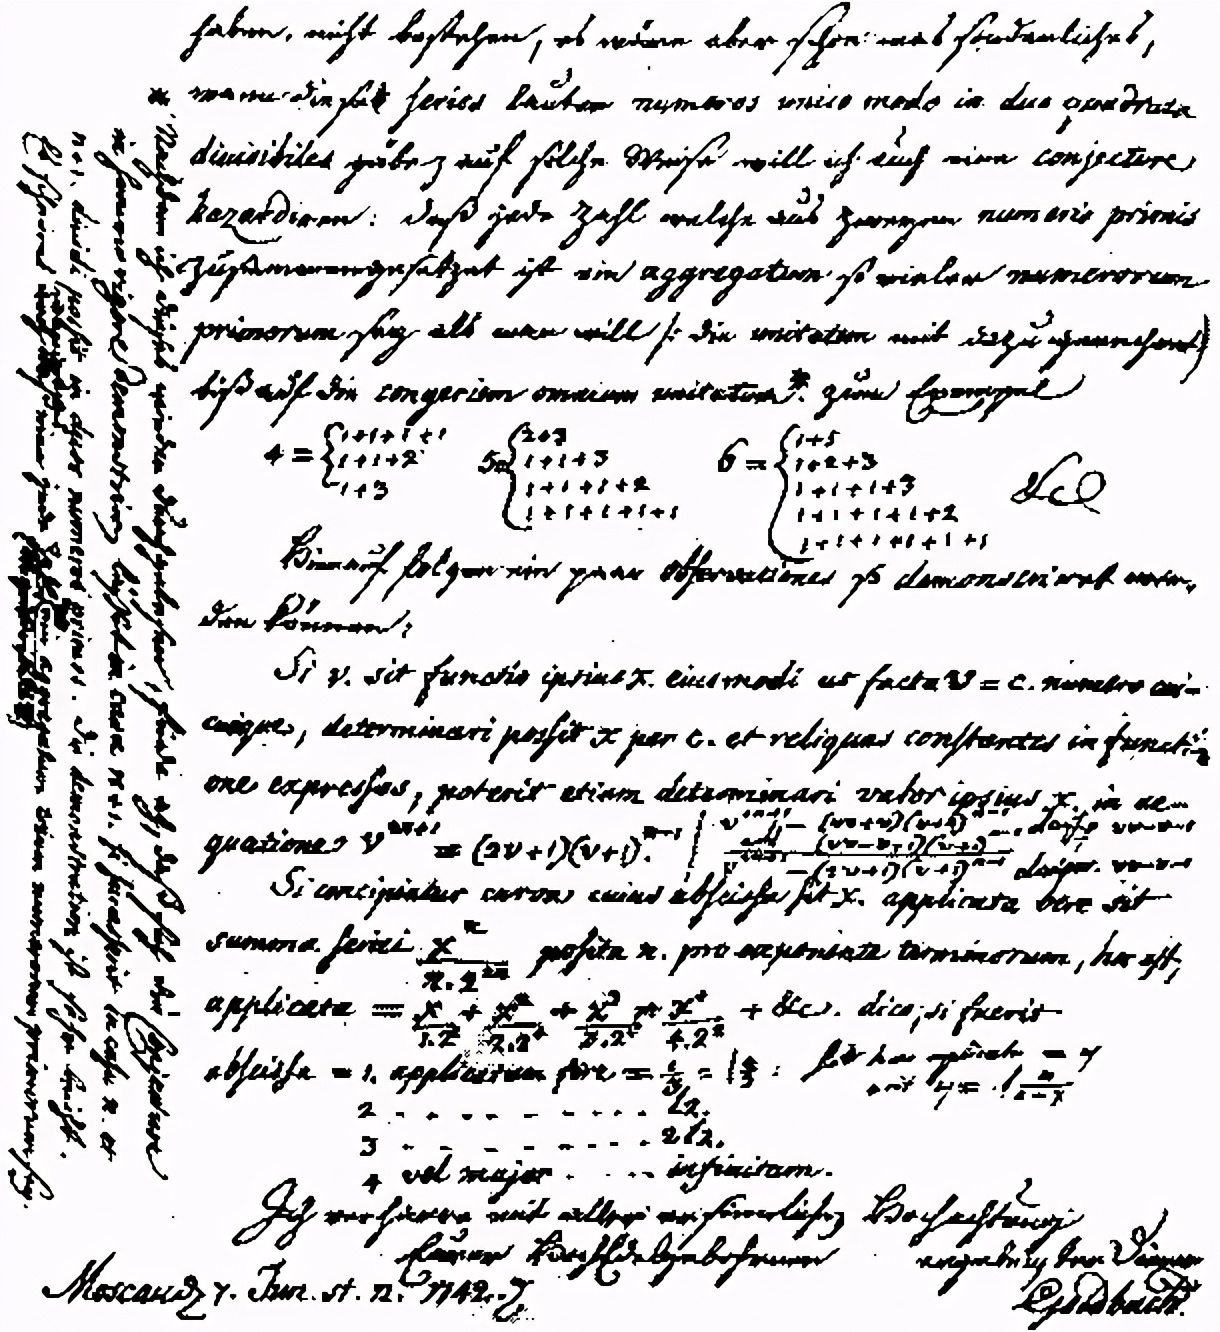 haben, nicht bestehen, es wäre aber schon was sonderliches,
wann diese series lauter numeros unico modo in duo quadrata
divisibiles gäbe auf solche Weise will ich auch eine conjecture
hazardiren: daß jede Zahl welche aus zweyen numeris primis
zusammengesetzet ist ein aggregatum so vieler numerorum
primorum sey als man will (: die unitatem mit dazu gerechnet)
biß auf die congeriem omnium unitatum*. zum Exempel
4 = { 1+1+1+1 5 = { 2+3 6 = { 1+5
1+1+2 1+1+3 1+2+3
1+3 1+1+1+2 1+1+1+3 &c
1+1+1+1+1 1+1+1+1+2
1+1+1+1+1+1
Hierauf folgen ein paar observationes so demonstriret wer-
den können:
Si v. sit functio ipsius x. eiusmodi ut facta v = c. numero cui-
cunque, determinari possit x per c. et reliquas constantes in functi-
one expressas, poterit etiam determinari valor ipsius x. in ae-
quatione v^{2n+1} = (2v+1)(v+1)^{n-1}
Si concipiatur curva cuius abscissa sit x. applicata vero sit
summa seriei x^n / n.2^{2n} posita n. pro exponente terminorum, hoc est,
applicata = x/1.2^2 + x^2/2.2^4 + x^3/3.2^6 + x^4/4.2^8 + &c. dico, si fuerit
abscissa = 1. applicatam fore = l 4/3
2 . . . . . . . . . l2.
3 . . . . . . . . . 2l2.
4 vel major . . . . infinitam.
Ich verharre mit aller ersinnlichen Hochachtung
Eurer Hochedelgebohrnen
ergebenster Diener
Moscau d. 7. Jun. st. n. 1742. Goldbach.
* Nachdem ich dieses wieder durchgelesen, finde ich, daß sich die conjecture
in summo rigore demonstriren lässet in casu n+1. si successerit in casu n. et
n+1. dividi possit in duos numeros primos. Die demonstration ist sehr leicht.
Es scheinet wenigstens, daß eine jede Zahl, die größer ist als 2, ein aggregatum trium numerorum primorum sey.